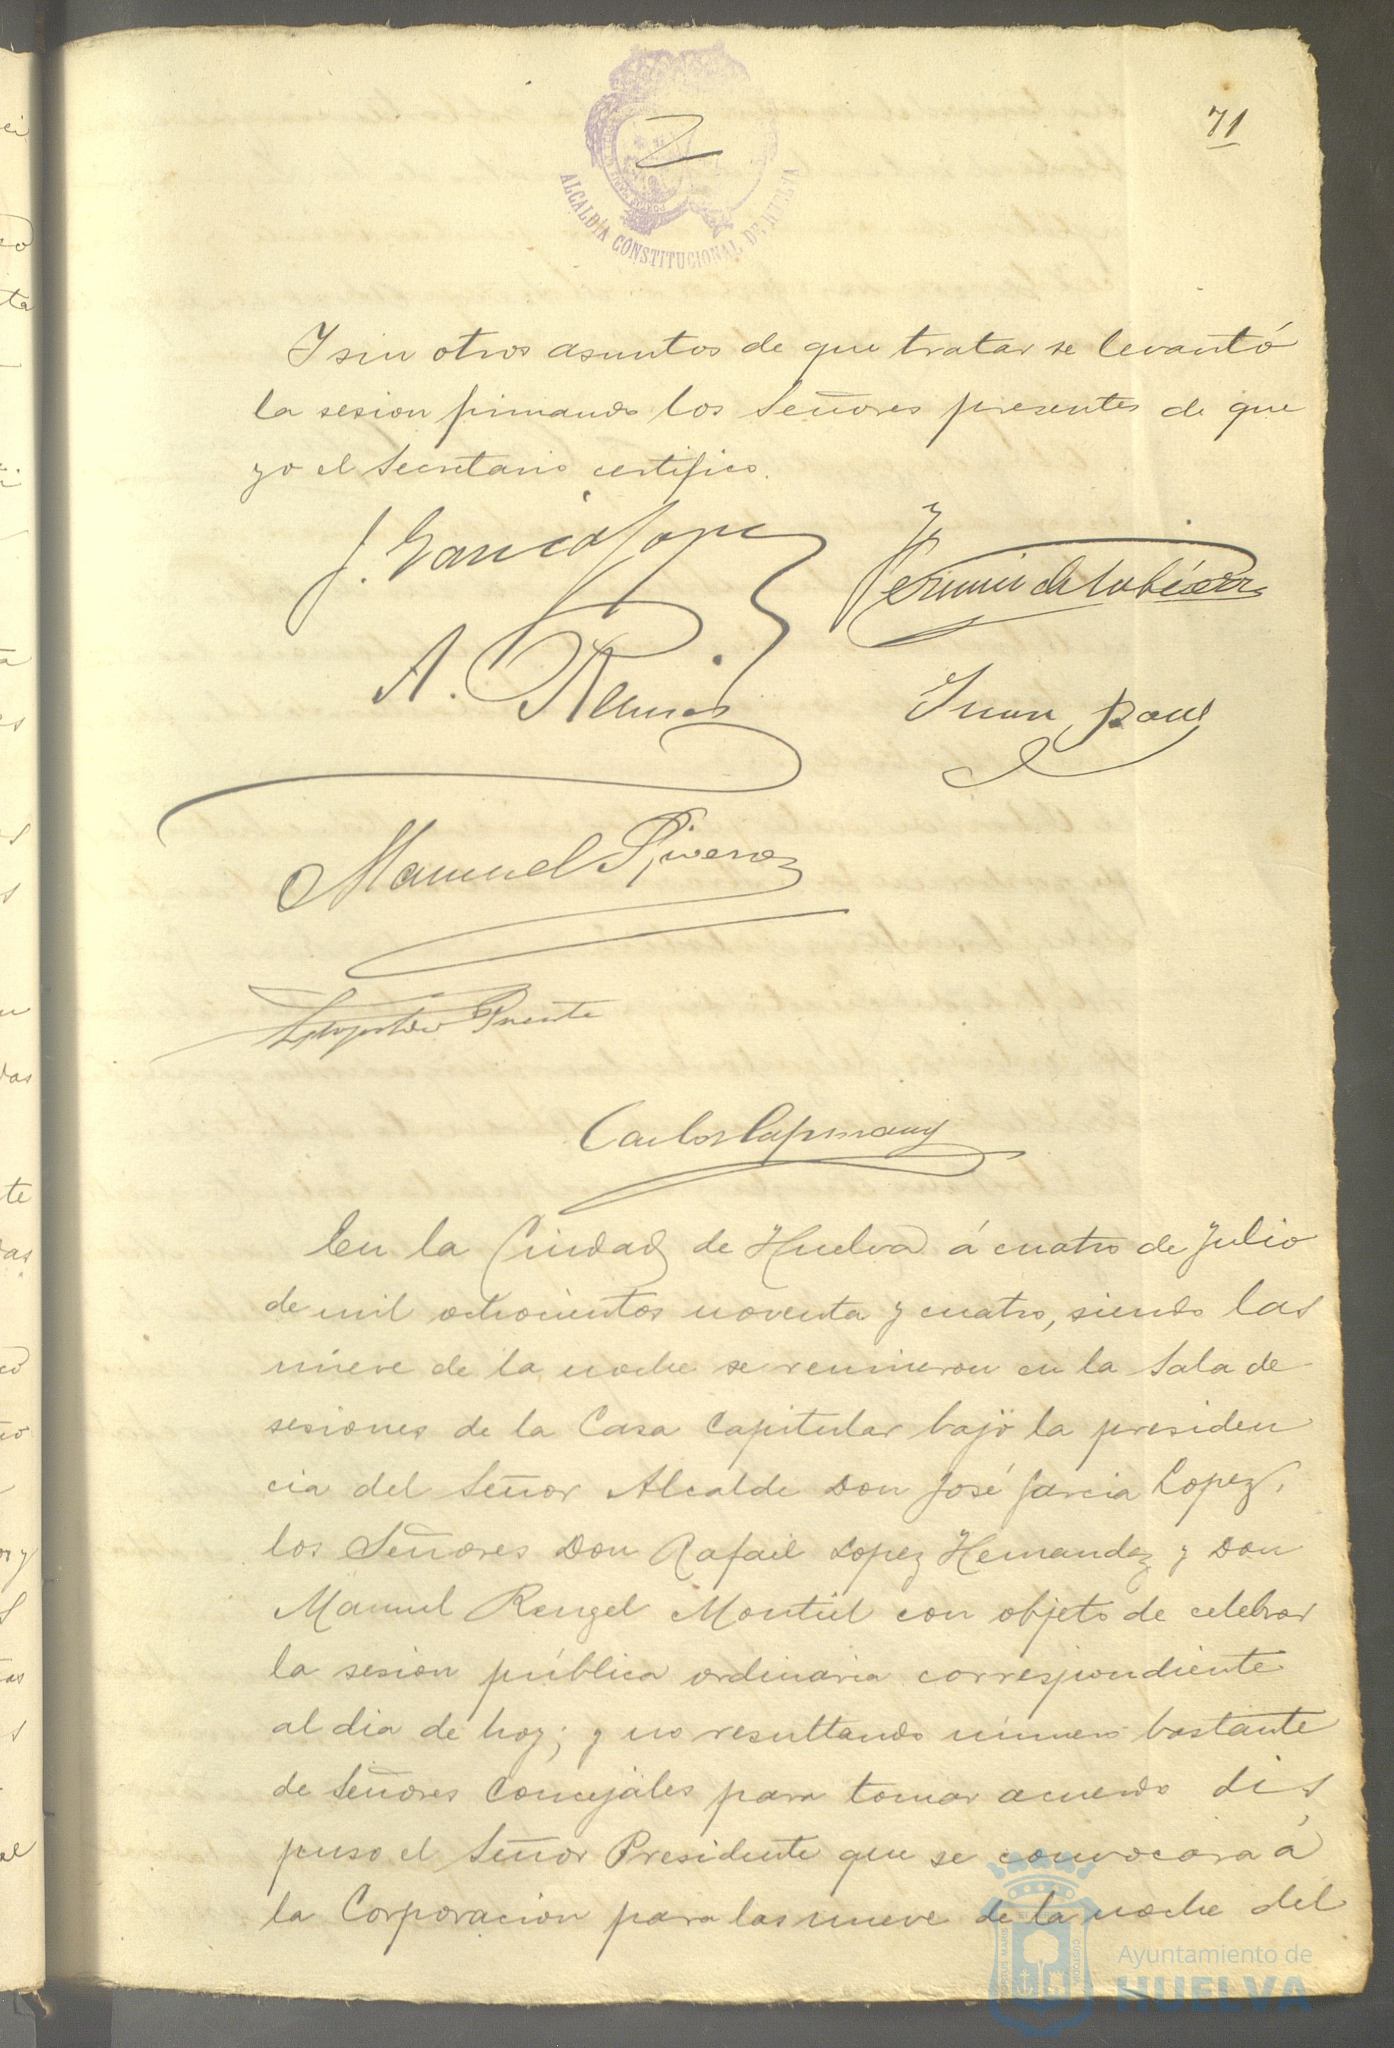 71
ALCALDÍA CONSTITUCIONAL DE HUELVA
Y sin otros asuntos de que tratar se levantó
la sesion firmando los Señores presentes de que
yo el Secretario certifico.
J. García Lopez
Fermin de la
A. Ramos
Juan
Manuel
Puente
Carlos Capmany
En la Ciudad de Huelva á cuatro de Julio
de mil ochocientos noventa y cuatro, siendo las
nueve de la noche se reunieron en la Sala de
sesiones de la Casa Capitular bajo la presiden
cia del Señor Alcalde Don José Garcia Lopez,
los Señores Don Rafael Lopez Hernandez y Don
Manuel Rengel Montiel con objeto de celebrar
la sesion pública ordinaria correspondiente
al dia de hoy; y no resultando número bastante
de Señores Concejales para tomar acuerdo dis
puso el Señor Presidente que se convocara á
la Corporacion para las nueve de la noche del
Ayuntamiento de
HUELVA